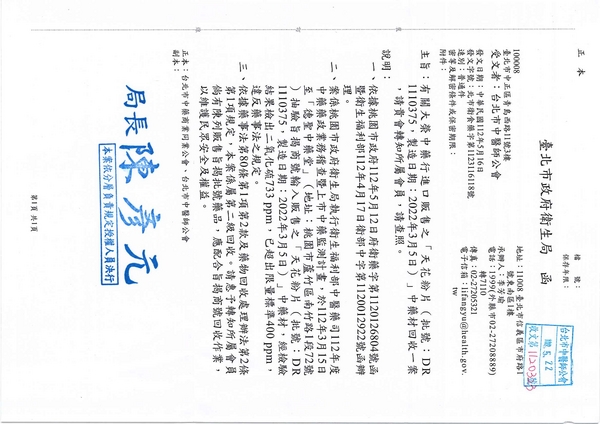 正 本
檔　號：
保存年限：
臺北市政府衛生局　函
地址：11008 臺北市信義區市府路1號東南區1樓
承辦人：李芳瑜
電話：1999(外縣市02-27208889)轉7110
傳真：02-27205321
電子信箱：lifangyu@health.gov.tw
台北市中醫師公會
112. 5. 22
收文第
10008
臺北市中正區青島西路11號3樓
受文者：台北市中醫師公會
發文日期：中華民國112年5月16日
發文字號：北市衛食藥字第1123116118號
速別：普通件
密等及解密條件或保密期限：
附件：
主旨：有關大榮中藥行進口販售之「天花粉片（批號：DR
1110375，製造日期：2022年3月5日）」中藥材回收一案
，請貴會轉知所屬會員，請查照。
說明：
一、依據桃園市政府112年5月12日府衛藥字第1120126804號函
暨衛生福利部112年4月17日衛部中字第1120012972號函辦
理。
二、案係桃園市政府衛生局執行衛生福利部中醫藥司112年度
中藥藥政業務稽查暨上市中藥監測計畫，於112年3月15日
至「德聖中藥堂」（地址：桃園市蘆竹區南竹路1段72號
）抽驗旨揭商號輸入販售之「天花粉片（批號：DR
1110375，製造日期：2022年3月5日）」中藥材，經檢驗
結果檢出二氧化硫733 ppm，已超出限量標準400 ppm，
違反藥事法之規定。
三、依據藥事法第80條第1項第2款及藥物回收處理辦法第2條
第1項規定，本案係屬第二級回收。請惠予轉知所屬會員
倘有陳列販售旨揭批號藥品，應配合旨揭商號回收作業，
以維護民眾安全及權益。
正本：台北市中藥商業同業公會、台北市中醫師公會
副本：
局長 陳彥元
本案依分層負責規定授權人員決行
第1頁 共1頁